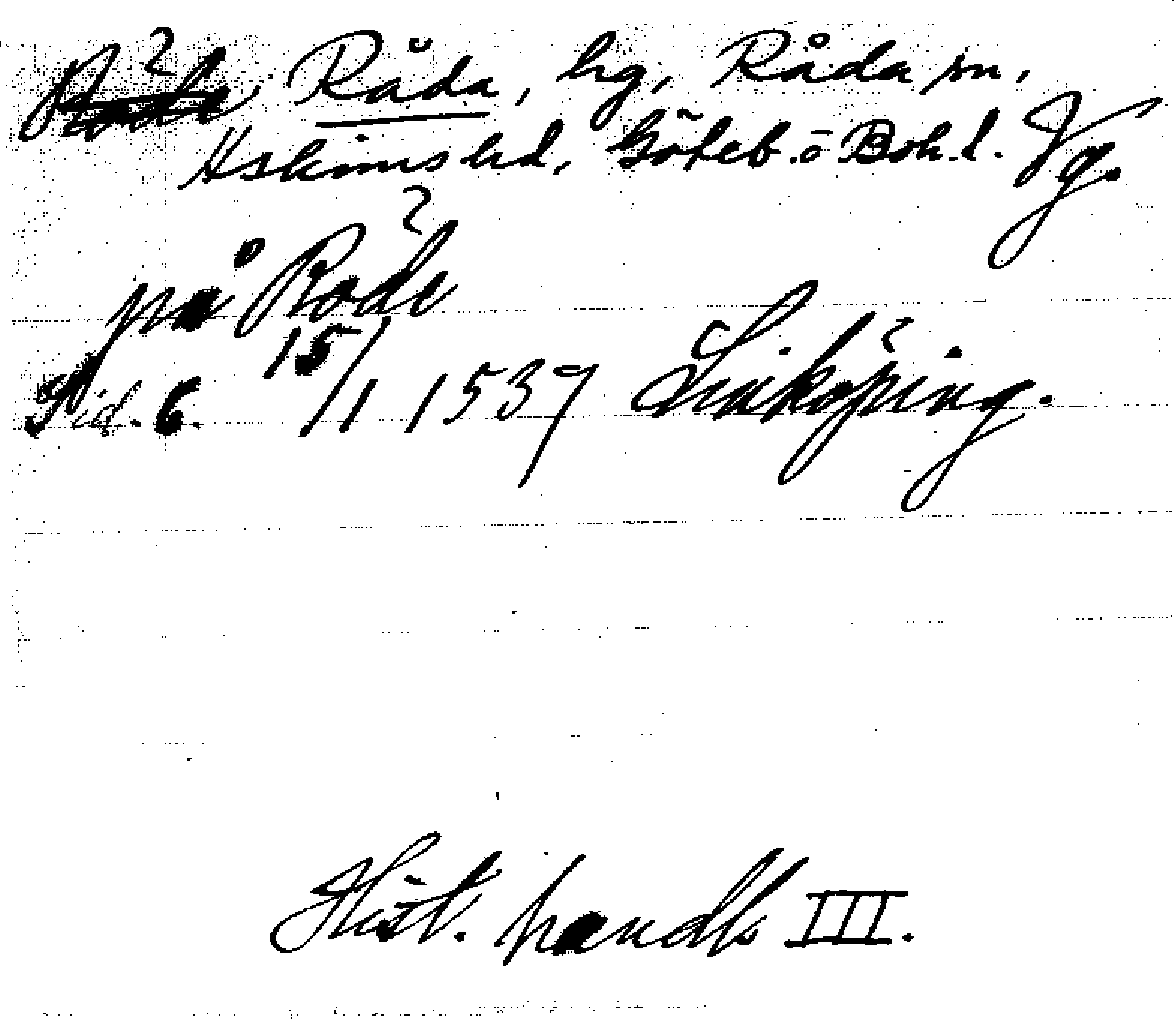 Rode Råda, hg, Råda sn,
Askims hd, Göteb. o Boh. l. Vg.
på Rode
Sid. 6. 15/1 1537 Linköping.
Hist. handl. III.